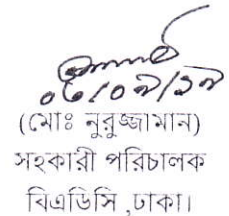 ০৬/০৯/১৭
(মোঃ নুরুজ্জামান)
সহকারী পরিচালক
বিএডিসি ,ঢাকা।